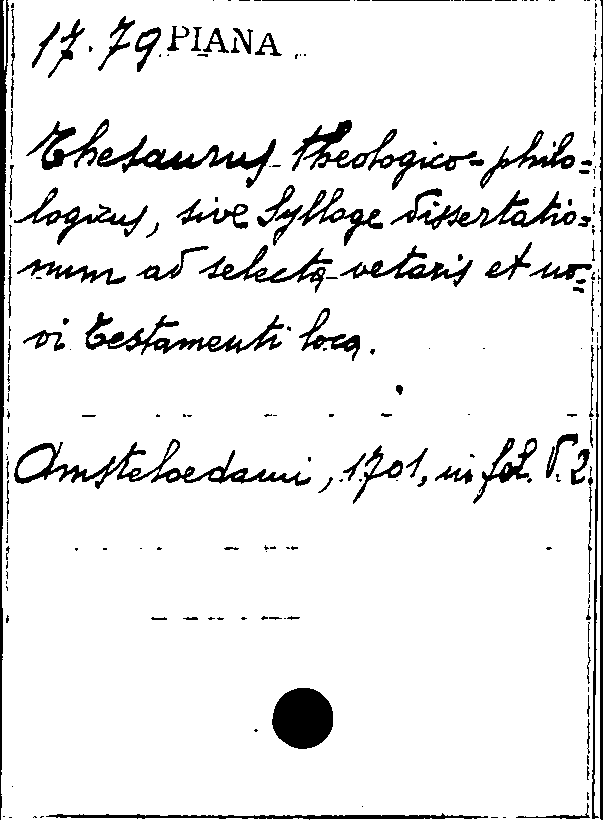 17.79 PIANA
Thesaurus theologico=philo=
logicus, sive Sylloge dissertatio=
num ad selecta vetaris et no=
vi testamenti loca.
Amsteloedami, 1701, in fol. V. 2.